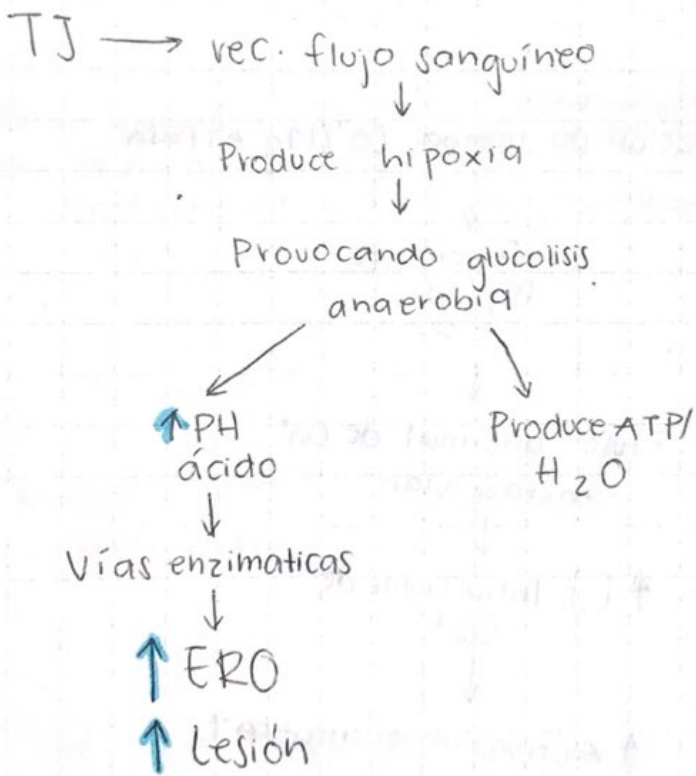 TJ → vec. flujo sanguíneo
↓
Produce hipoxia
↓
Provocando glucolisis
anaerobia
↑ PH
ácido
Produce ATP/
H₂O
↓
Vías enzimaticas
↓
↑ ERO
↑ Lesión